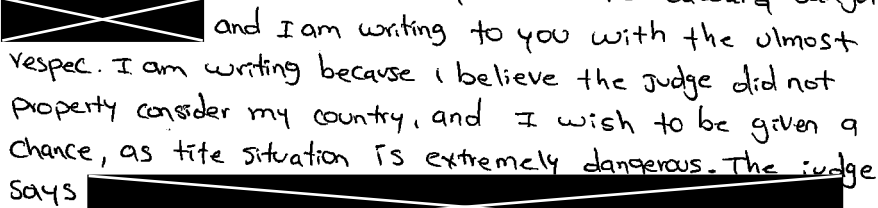 and I am writing to you with the ulmost
respec. I am writing because i believe the Judge did not
property consider my country, and I wish to be given a
chance, as tite situation is extremely dangerous. The judge
says